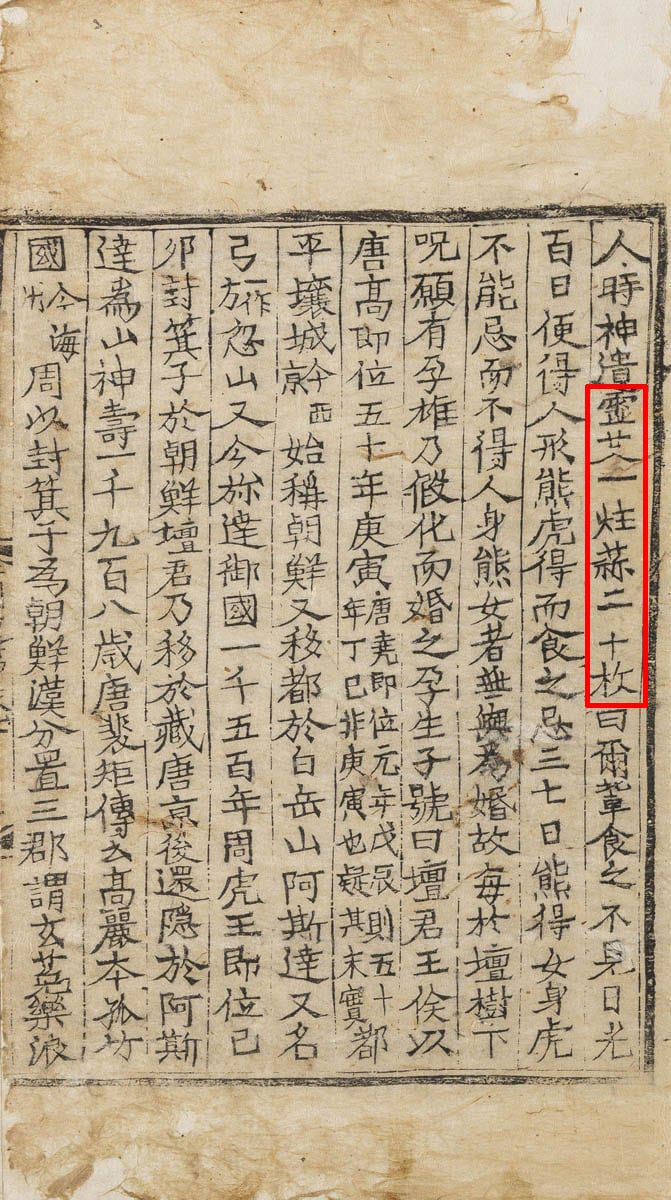 人時神遺霊艾一炷蒜二十枚曰爾輩食之不見日光
百日便得人形熊虎得而食之忌三七日熊得女身虎
不能忌而不得人身熊女者無與為婚故每於壇樹下
呪願有孕雄乃假化而婚之孕生子號曰壇君王倹以
唐髙即位五十年庚寅唐堯即位元年戊辰則五十年丁巳非庚寅也疑其未實都
平壤城今西京始稱朝鮮又移都於白岳山阿斯達又名
弓一作方忽山又今旀達御國一千五百年周虎王即位己
卯封箕子於朝鮮壇君乃移於藏唐京後還隠於阿斯
達為山神壽一千九百八歳唐裴矩傳云髙麗本孤竹
國今海州周以封箕子為朝鮮漢分置三郡謂玄菟樂浪